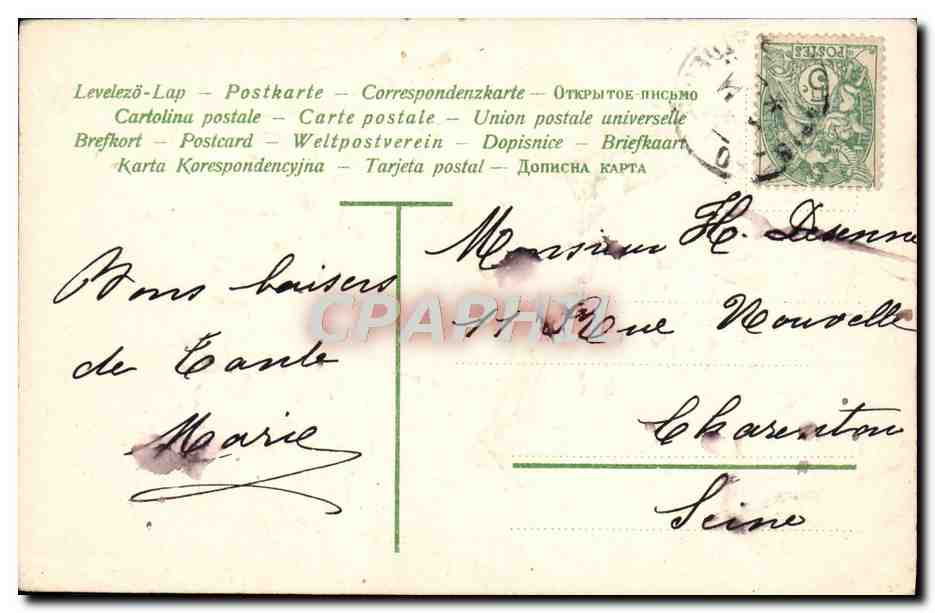 Levelezö-Lap – Postkarte – Correspondenzkarte – Открытое-письмо
Cartolina postale – Carte postale – Union postale universelle
Brefkort – Postcard – Weltpostverein – Dopisnice – Briefkaart
Karta Korespondencyjna – Tarjeta postal – Дописна карта
POSTES
5
Monsieur H. Desenne
11 Rue Nouvelle
Charenton
Seine
Bons baisers
de Tante
Marie
CPAPHIL